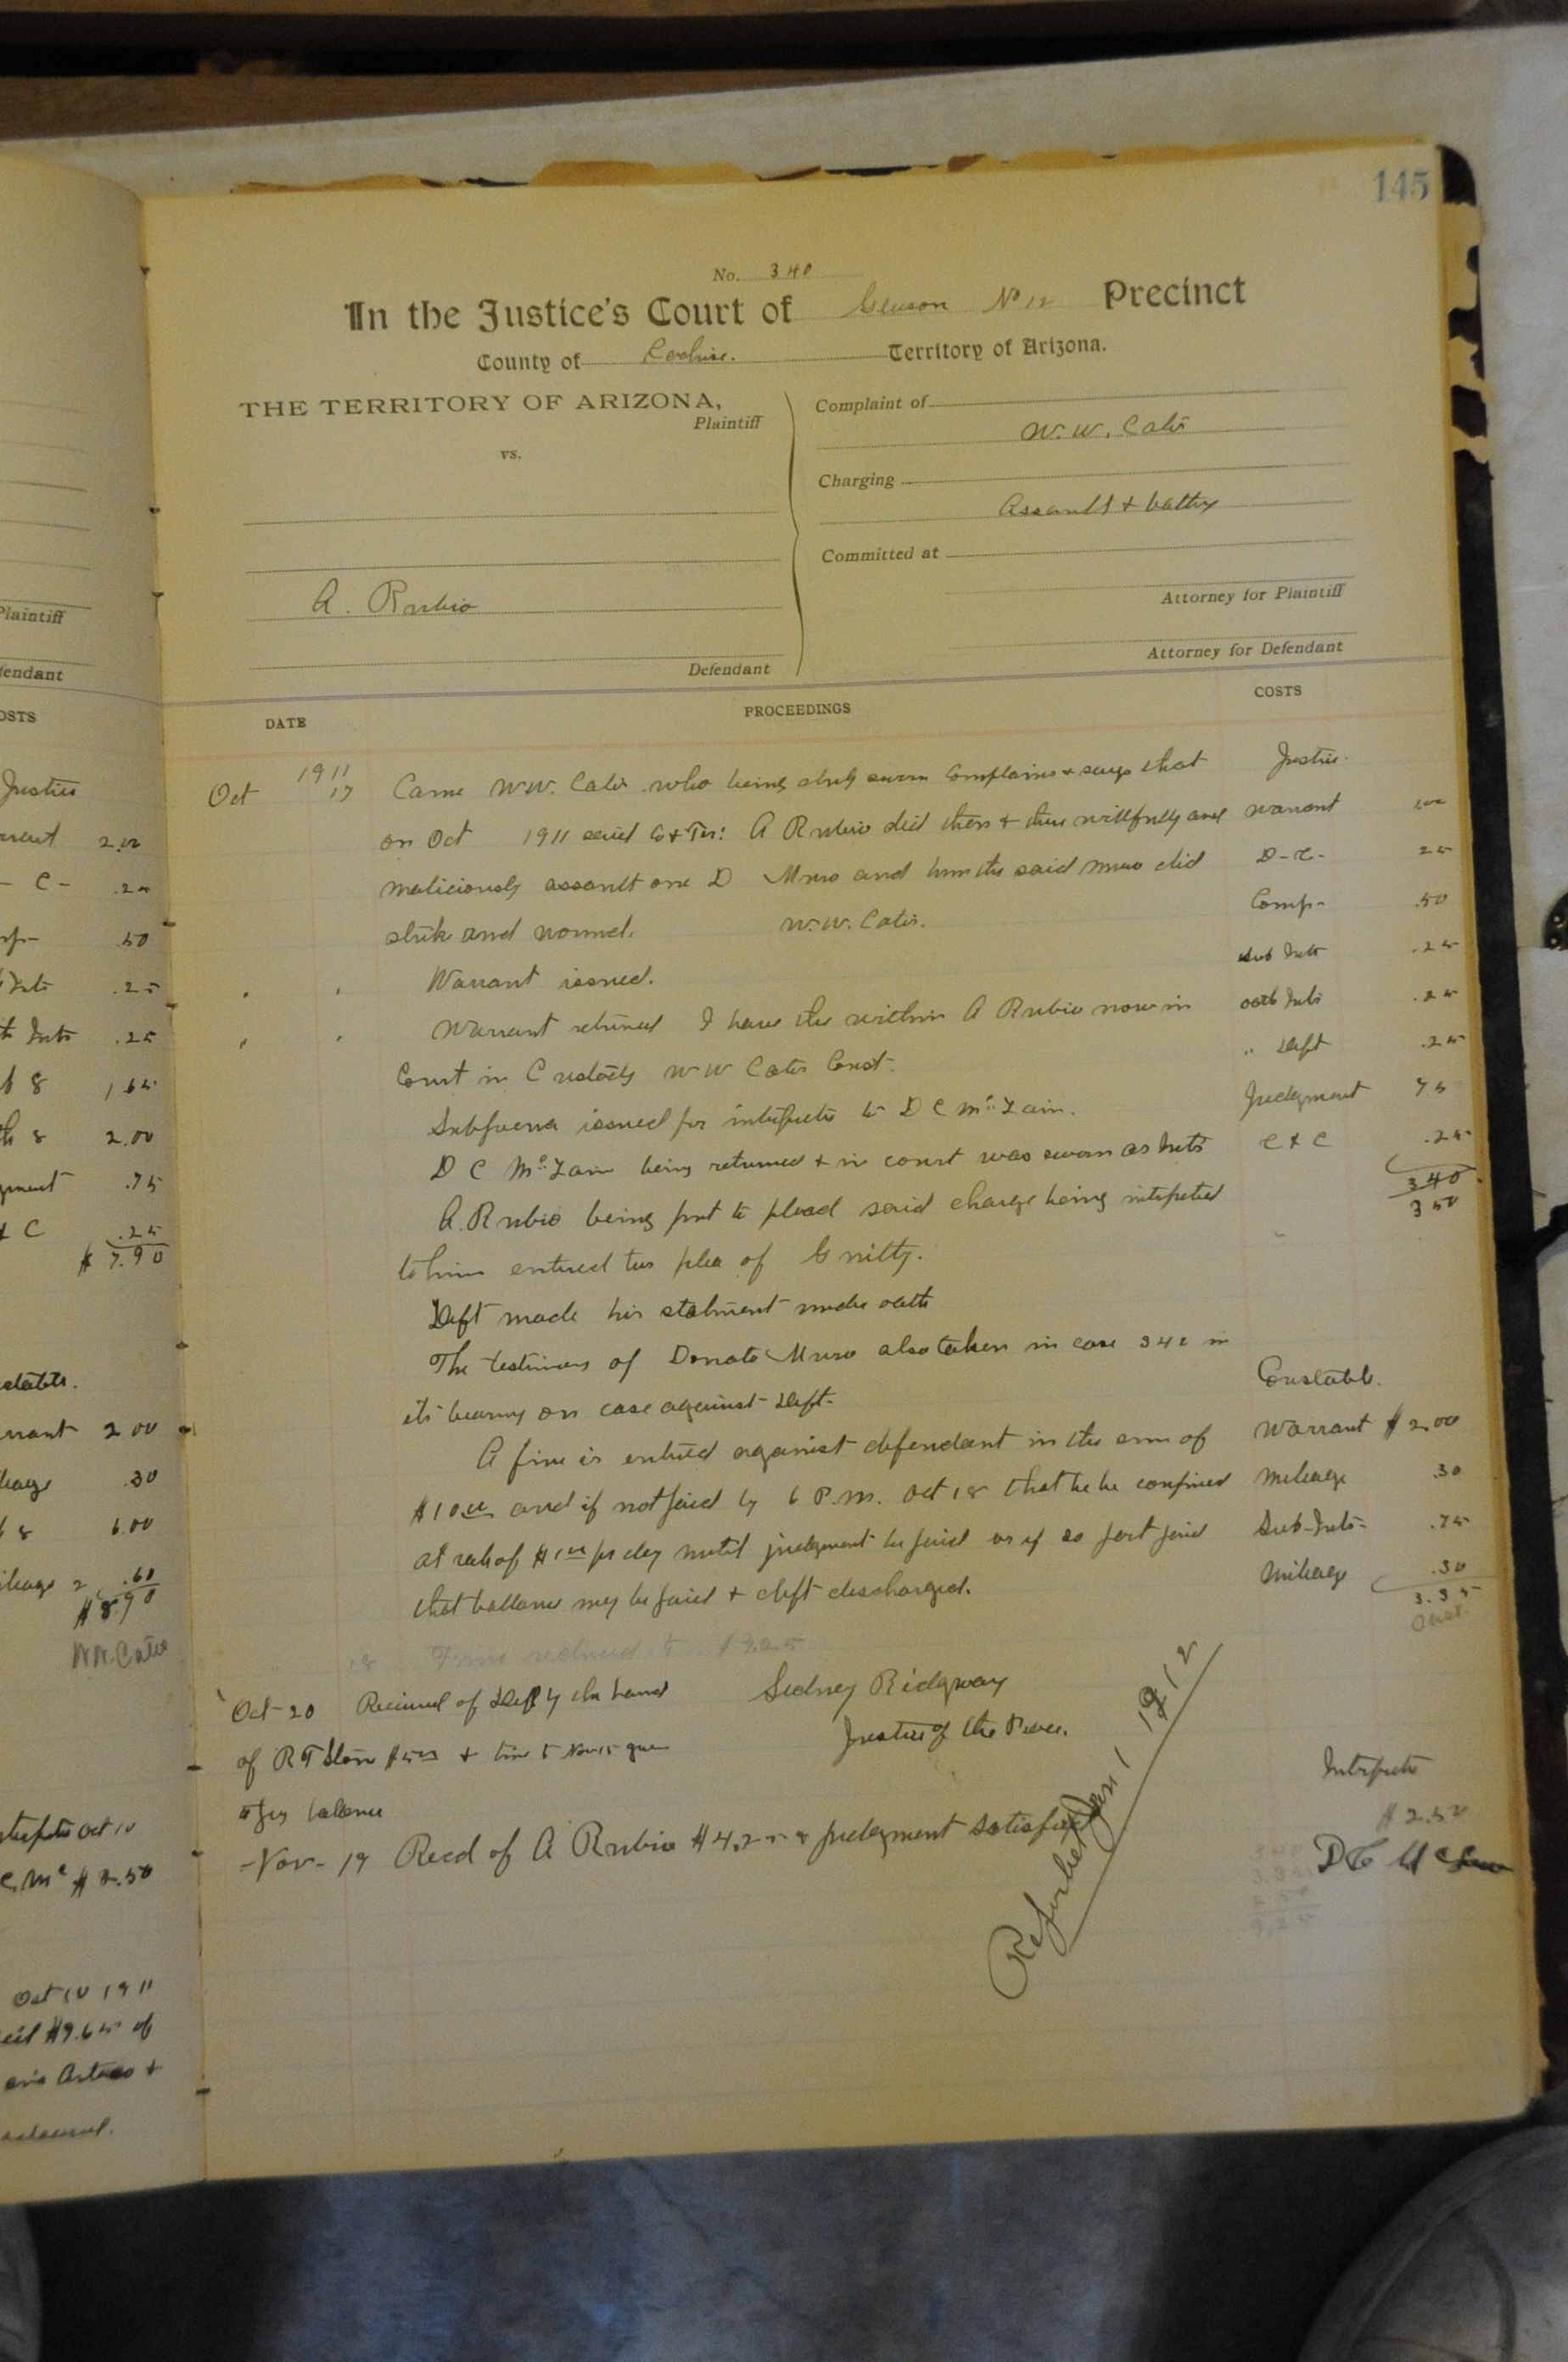 145
No. 340
In the Justice's Court of Gleason No 12 Precinct
County of Cochise. Territory of Arizona.
THE TERRITORY OF ARIZONA,
Plaintiff
vs.
A. Rubio
Defendant
Complaint of
W. W. Cates
Charging
Assault & battry
Committed at
Attorney for Plaintiff
Attorney for Defendant
DATE PROCEEDINGS COSTS
1911
Oct 17 Came W.W. Cates who being duly sworn Complains & says that Justice
on Oct 1911 said Co & Ter: A Rubio did then & there willfully and warrant 1.00
maliciously assault one D Muro and him the said Muro did D-C- 25
strik and wound. W.W. Cates. Comp- .50
Warrant issued. Sub Intr .25
Warrant returned I have the within A Rubio now in oath Intr .25
Court in Custody W W Cates Const. " Deft .25
Subpoena issued for interpreter to D C Mc Lain. Judgment 75
D C Mc Lain being returned & in court was sworn as Intr E & C .25
340
A. Rubio being put to plead said charge being interpreted 350
to him entered his plea of Guilty.
Deft made his statment under oath
The testimony of Donato Muro also taken in case 342 in
its bearing on case against Deft. Constable.
A fine is entered against defendant in the sum of Warrant $2.00
$10.00 and if not paid by 6 P.M. Oct 18 that he be confined Mileage .30
at rate of $1.00 pr day until judgment be paid or if so part paid Sub-Intr- .75
that ballance may be paid & deft discharged. Mileage .30
3.35
18 Fine reduced to $9.25
Oct-20 Recieved of Deft by the hand Sidney Ridgway
of R T $5.00 & time to Nov 15 Justice of the Peace.
to pay balance
Nov- 19 Recd of A Rubio $4.25 & judgment satisfied
Jan 1 1912
Interpreter
$2.50
D C McLain
9.25
Plaintiff
Defendant
COSTS
Justice
2.00
C-
.50
.25
Intr .25
8 1.65
8 2.00
.75
C .25
$7.90
2 00
.30
8 6.00
2 .60
$8.90
W.W. Cates
Oct 10
Mc $2.50
Oct 10 1911
$9.65 of